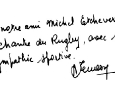 notre ami Michel Etchever
chantre du Rugby, avec s
sympathie sportive.